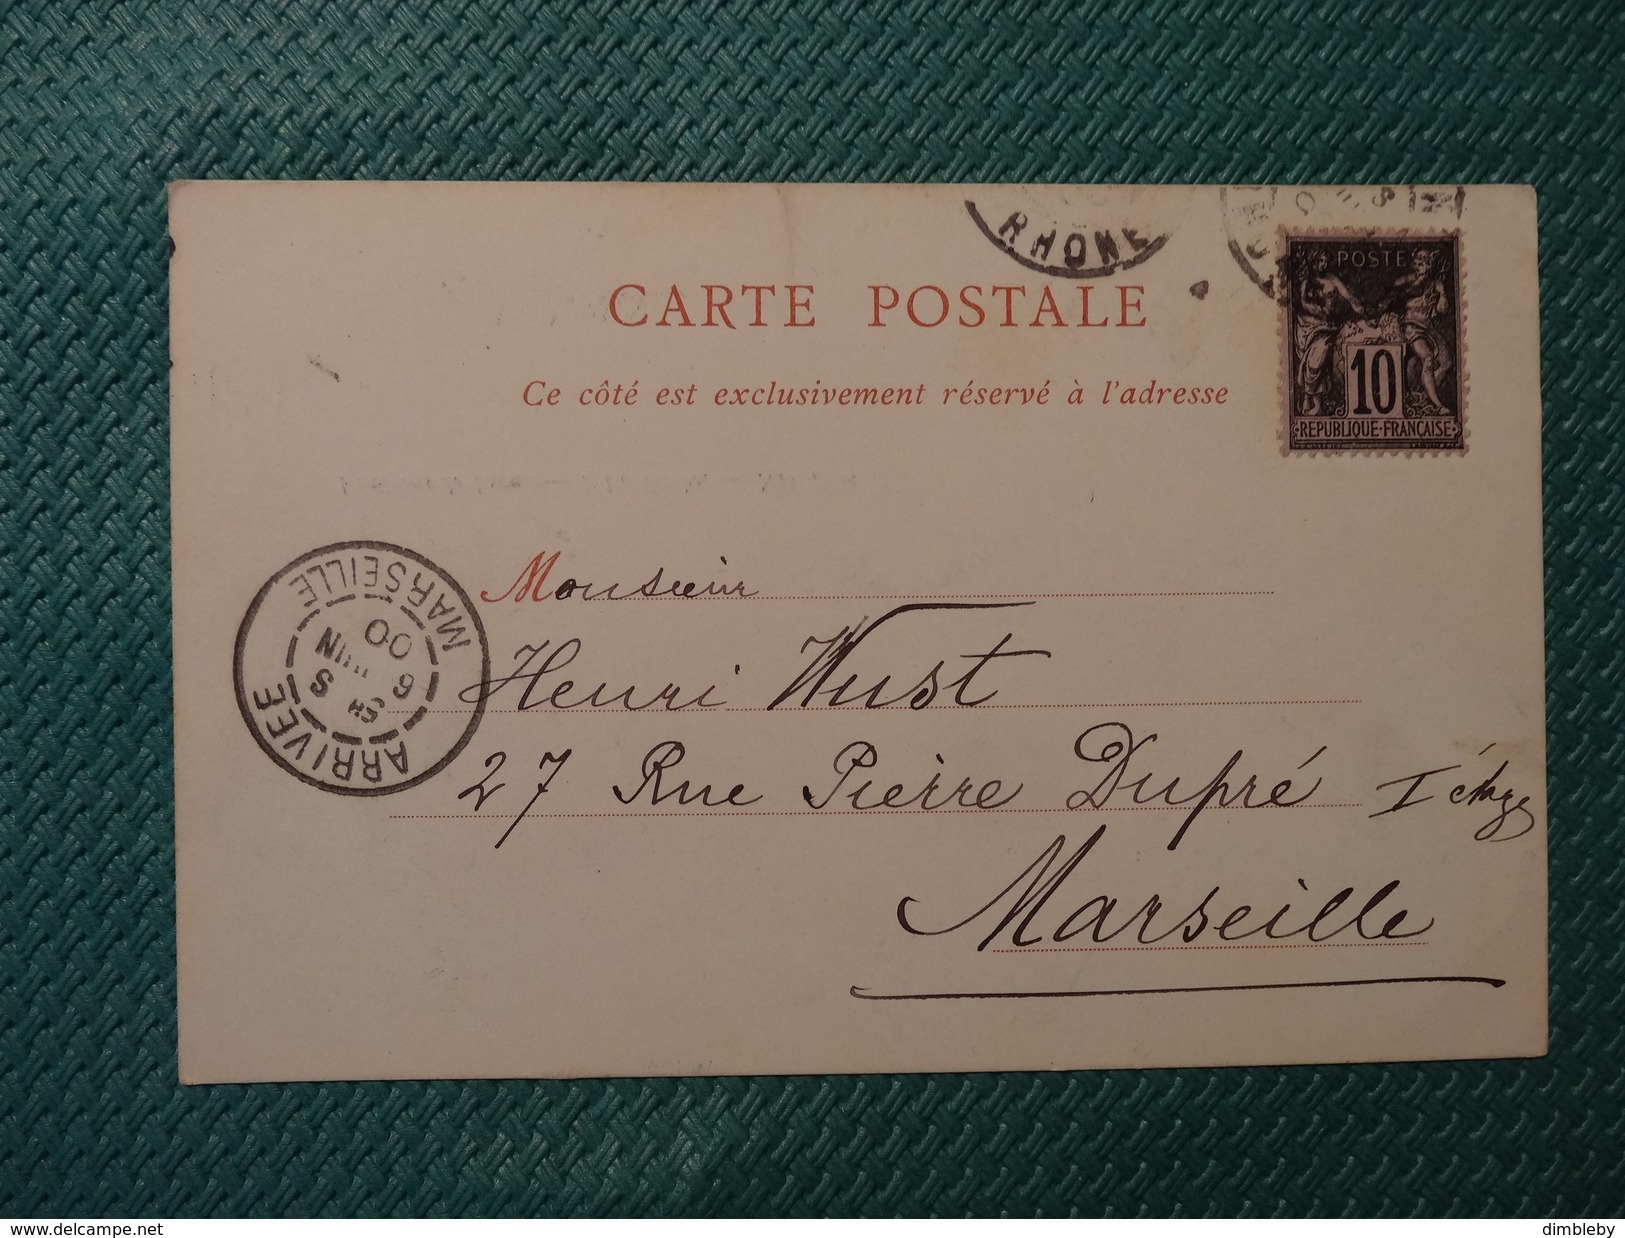 RHONE
CARTE POSTALE
Ce côté est exclusivement réservé à l'adresse
POSTE
10
REPUBLIQUE·FRANÇAISE
Monsieur
Henri Wust
27 Rue Pierre Dupré I étage
Marseille
MARSEILLE
00
6 JUIN
S
ARRIVEE
www.delcampe.net
dimbleby